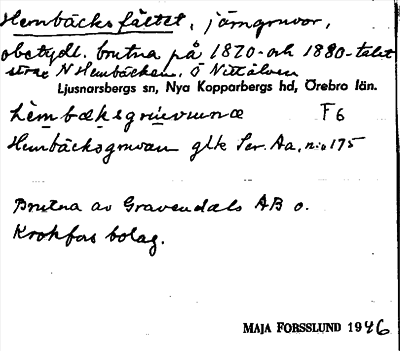 Hembäcksfältet, järngruvor,
obetydl. brutna på 1870- och 1880-talet
strax N Hembäcken, Ö Nittälven
Ljusnarsbergs sn, Nya Kopparbergs hd, Örebro län.
hèmbæksgrúvvunæ F6
Hembäcksgruvan glk Ser. Aa, n:o 175
Brutna av Gravendals AB o.
Krokfors bolag.
MAJA FORSSLUND 1946